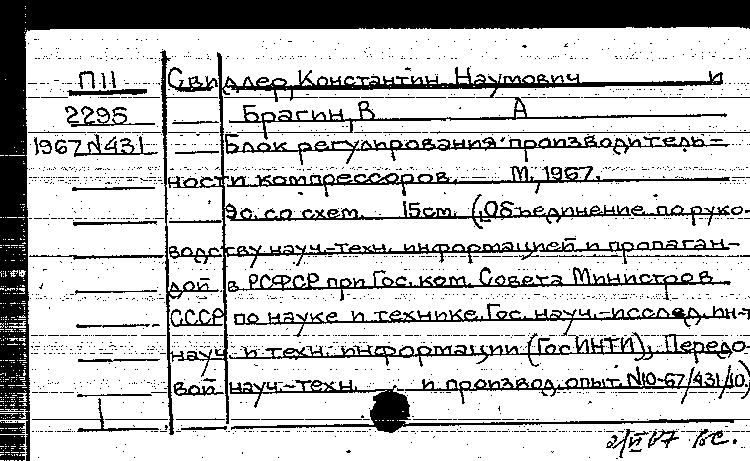 П11 Свидлер, Константин Наумович и
2295 Брагин, В А
1967 N431 Блок регулирования производитель=
ности компрессоров. М., 1967.
9с. со схем. 15см. (Объединение по руко-
водству науч.-техн. информацией и пропаган-
дой в РСФСР при Гос. ком. Совета Министров
СССР по науке и технике. Гос. науч.-исслед. ин-т
науч. и техн. информации (ГосИНТИ), Передо-
вой науч.-техн. и производ. опыт. N10-67/431/10.)